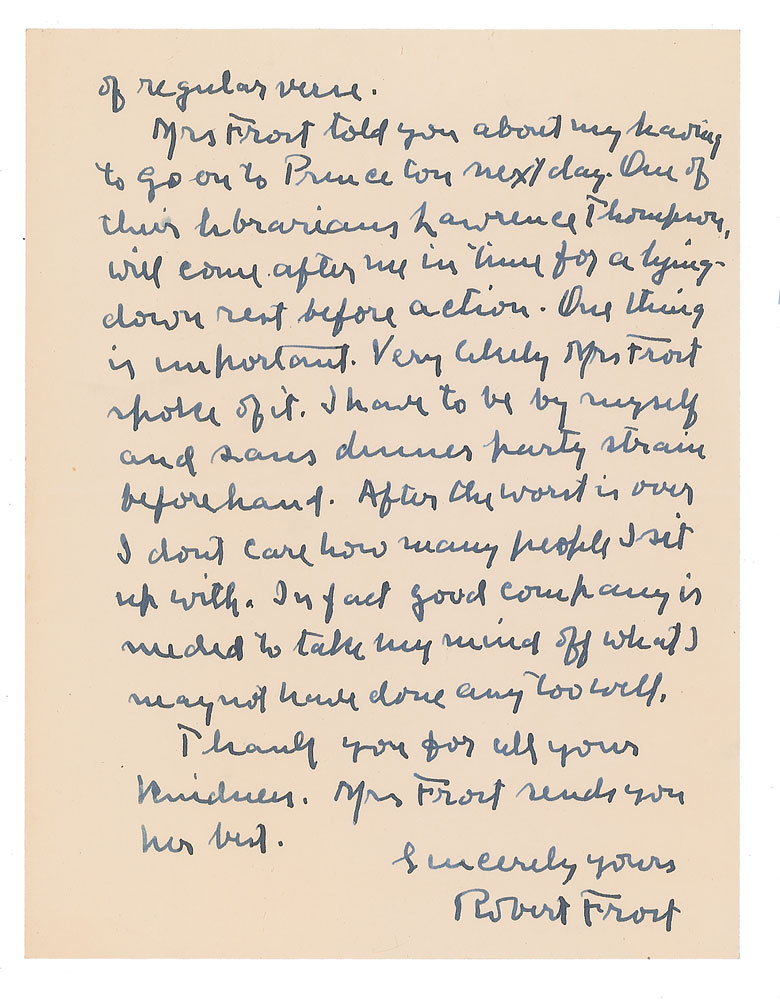 of regular verse.
Mrs Frost told you about my having
to go on to Princeton next day. One of
their librarians Lawrence Thompson,
will come after me in time for a lying-
down rest before action. One thing
is important. Very likely Mrs Frost
spoke of it. I have to be by myself
and sans dinner party strain
beforehand. After the worst is over
I dont care how many people I sit
up with. In fact good company is
needed to take my mind off what I
may not have done any too well.
Thank you for all your
kindness. Mrs Frost sends you
her best.
Sincerely yours
Robert Frost